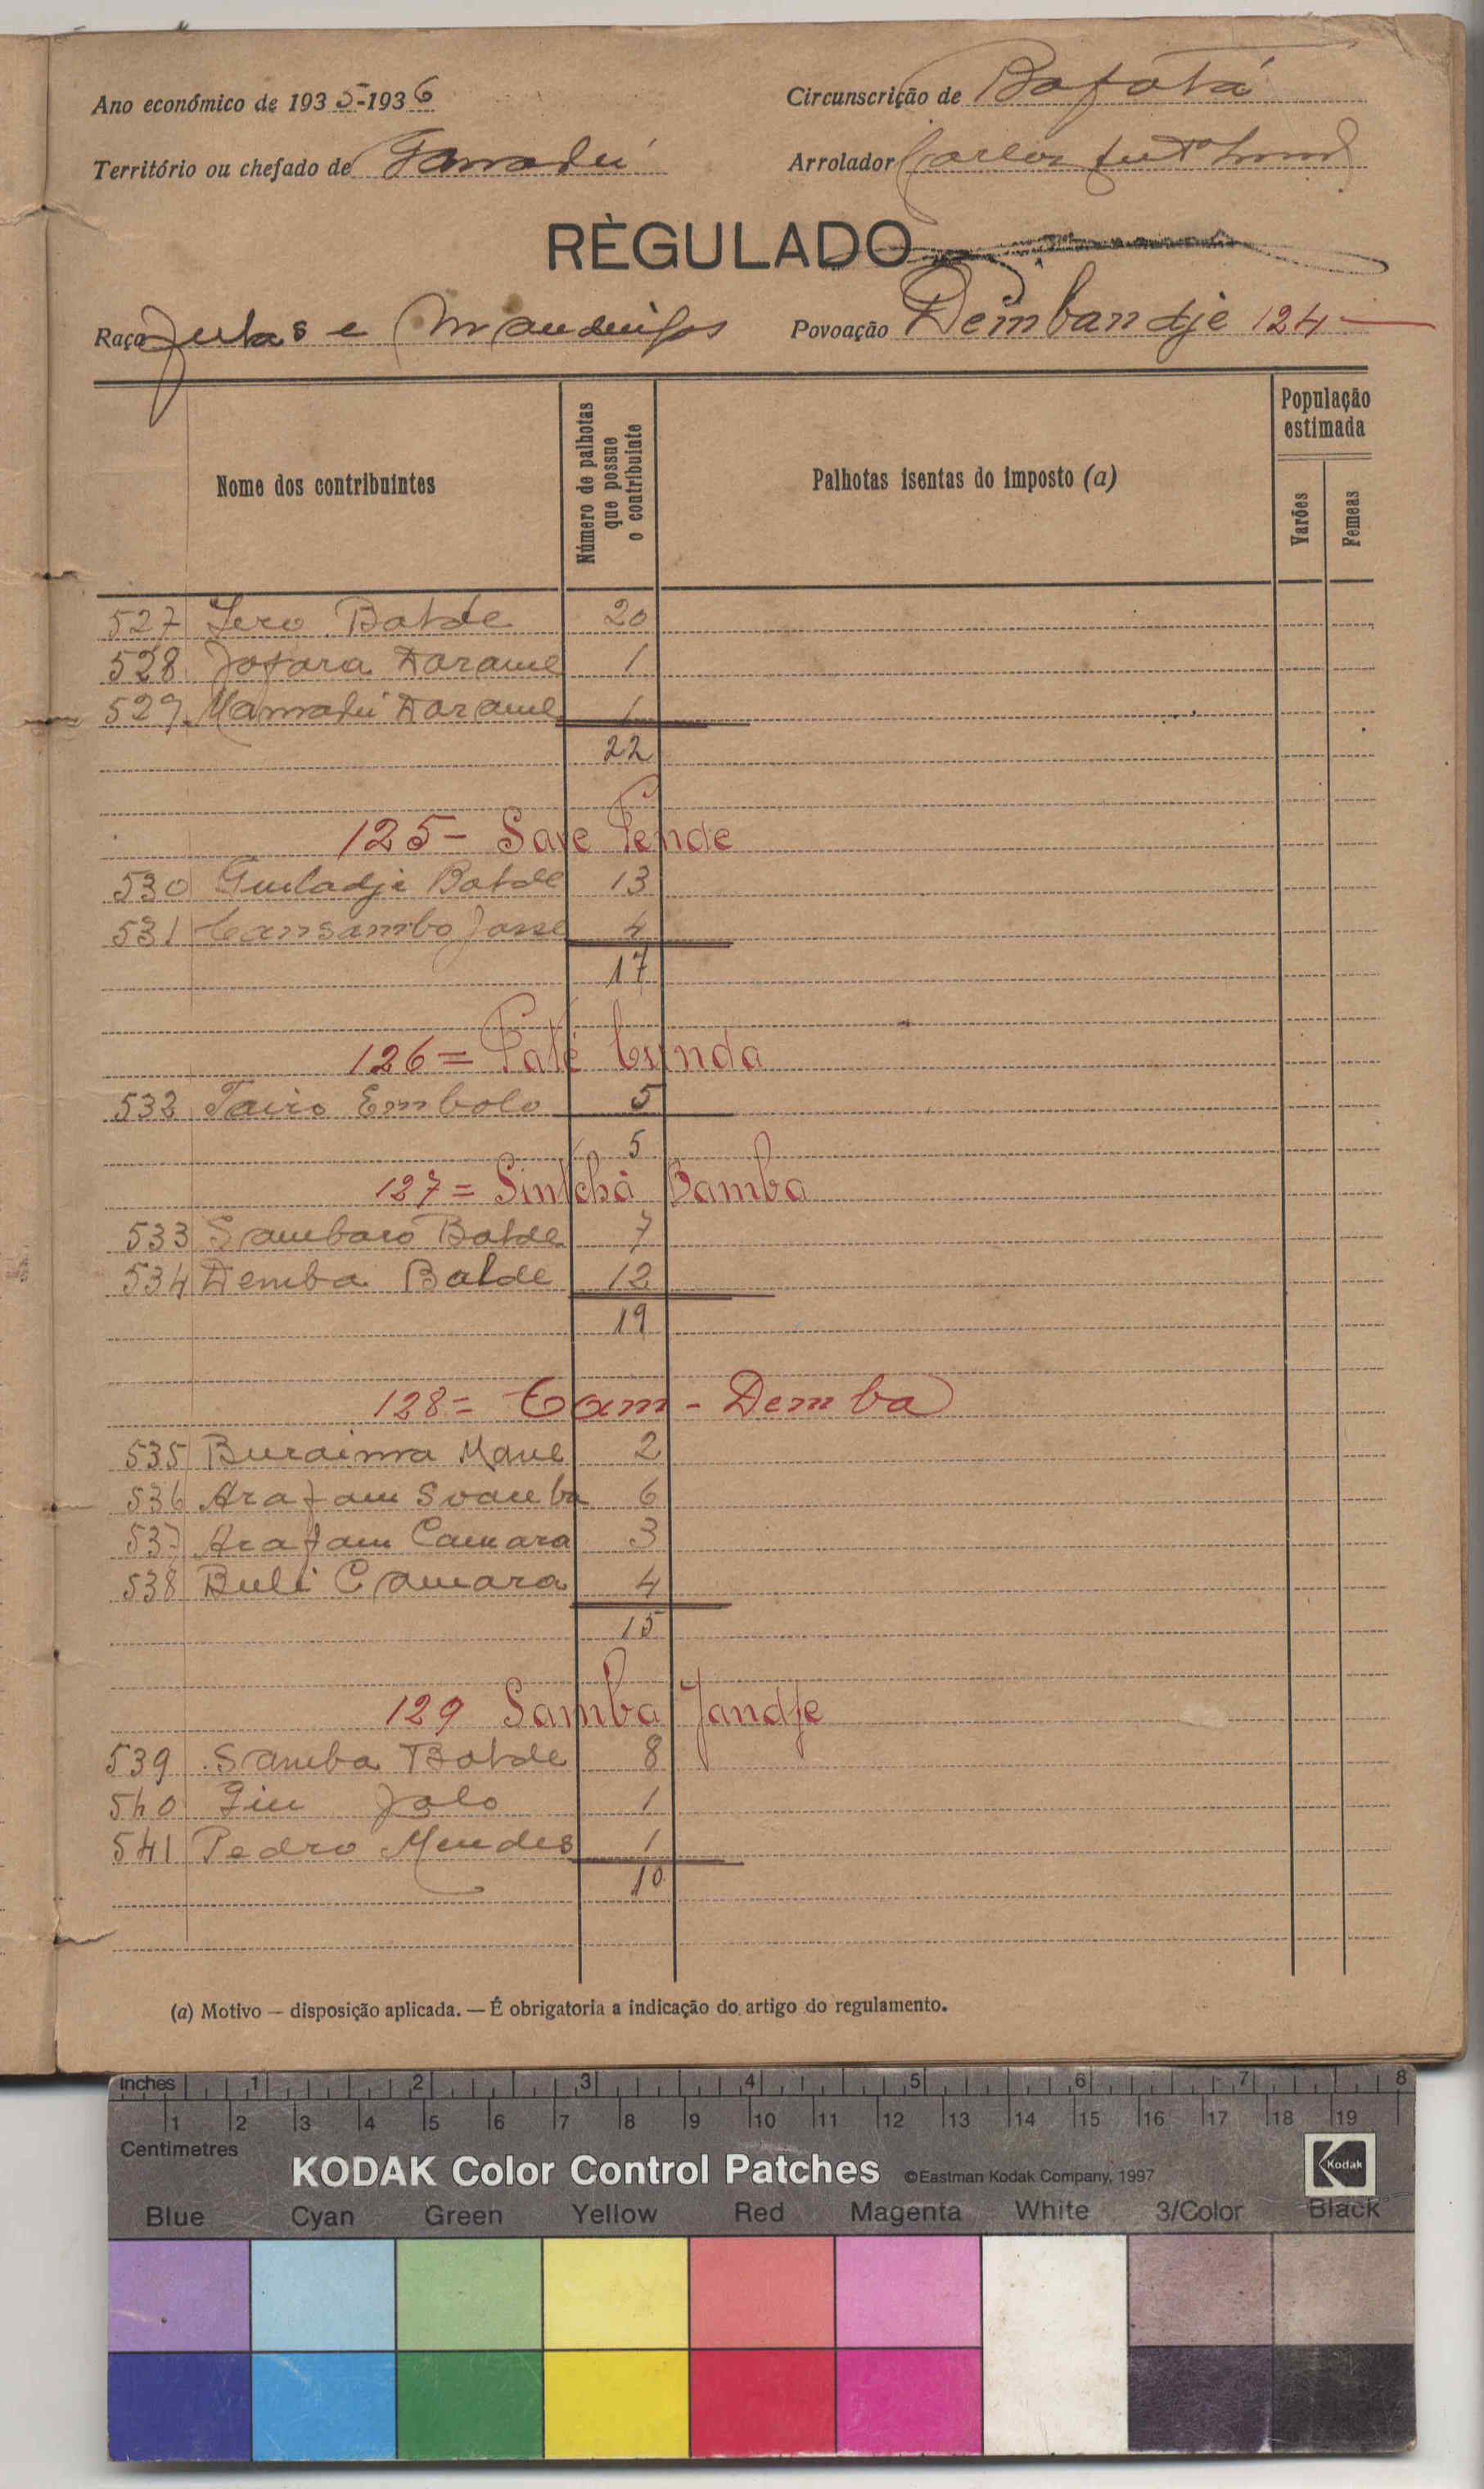 Ano económico de 1935-1936
Circunscrição de Bafatá
Território ou chefado de
Arrolador Carlos
RÈGULADO
Raça Fulas e Mandingas
Povoação Dembandje 124
Nome dos contribuintes
Número de palhotas que possue o contribuinte
Palhotas isentas do imposto (a)
População estimada
Varões
Femeas
527 Sero Balde 20
528 Jofara Darame 1
529 Mamadú Darame 1
22
125- Sare Pende
530 Guiladje Balde 13
531 Cansambo Jasse 4
17
126= Paté Cunda
532 Tairo Embalo 5
5
127= Sintchã Bamba
533 Sambaro Balde 7
534 Demba Balde 12
19
128= Cam-Demba
535 Buraima Mane 2
536 Arafam 6
537 Arafam Camara 3
538 Buli Camara 4
15
129 Samba Jandje
539 Samba Balde 8
540 Jalo 1
541 Pedro Mendes 1
10
(a) Motivo — disposição aplicada. — É obrigatoria a indicação do artigo do regulamento.
Inches 1 2 3 4 5 6 7 8
1 2 3 4 5 6 7 8 9 10 11 12 13 14 15 16 17 18 19
Centimetres
KODAK Color Control Patches ©Eastman Kodak Company, 1997 Kodak
Blue Cyan Green Yellow Red Magenta White 3/Color Black